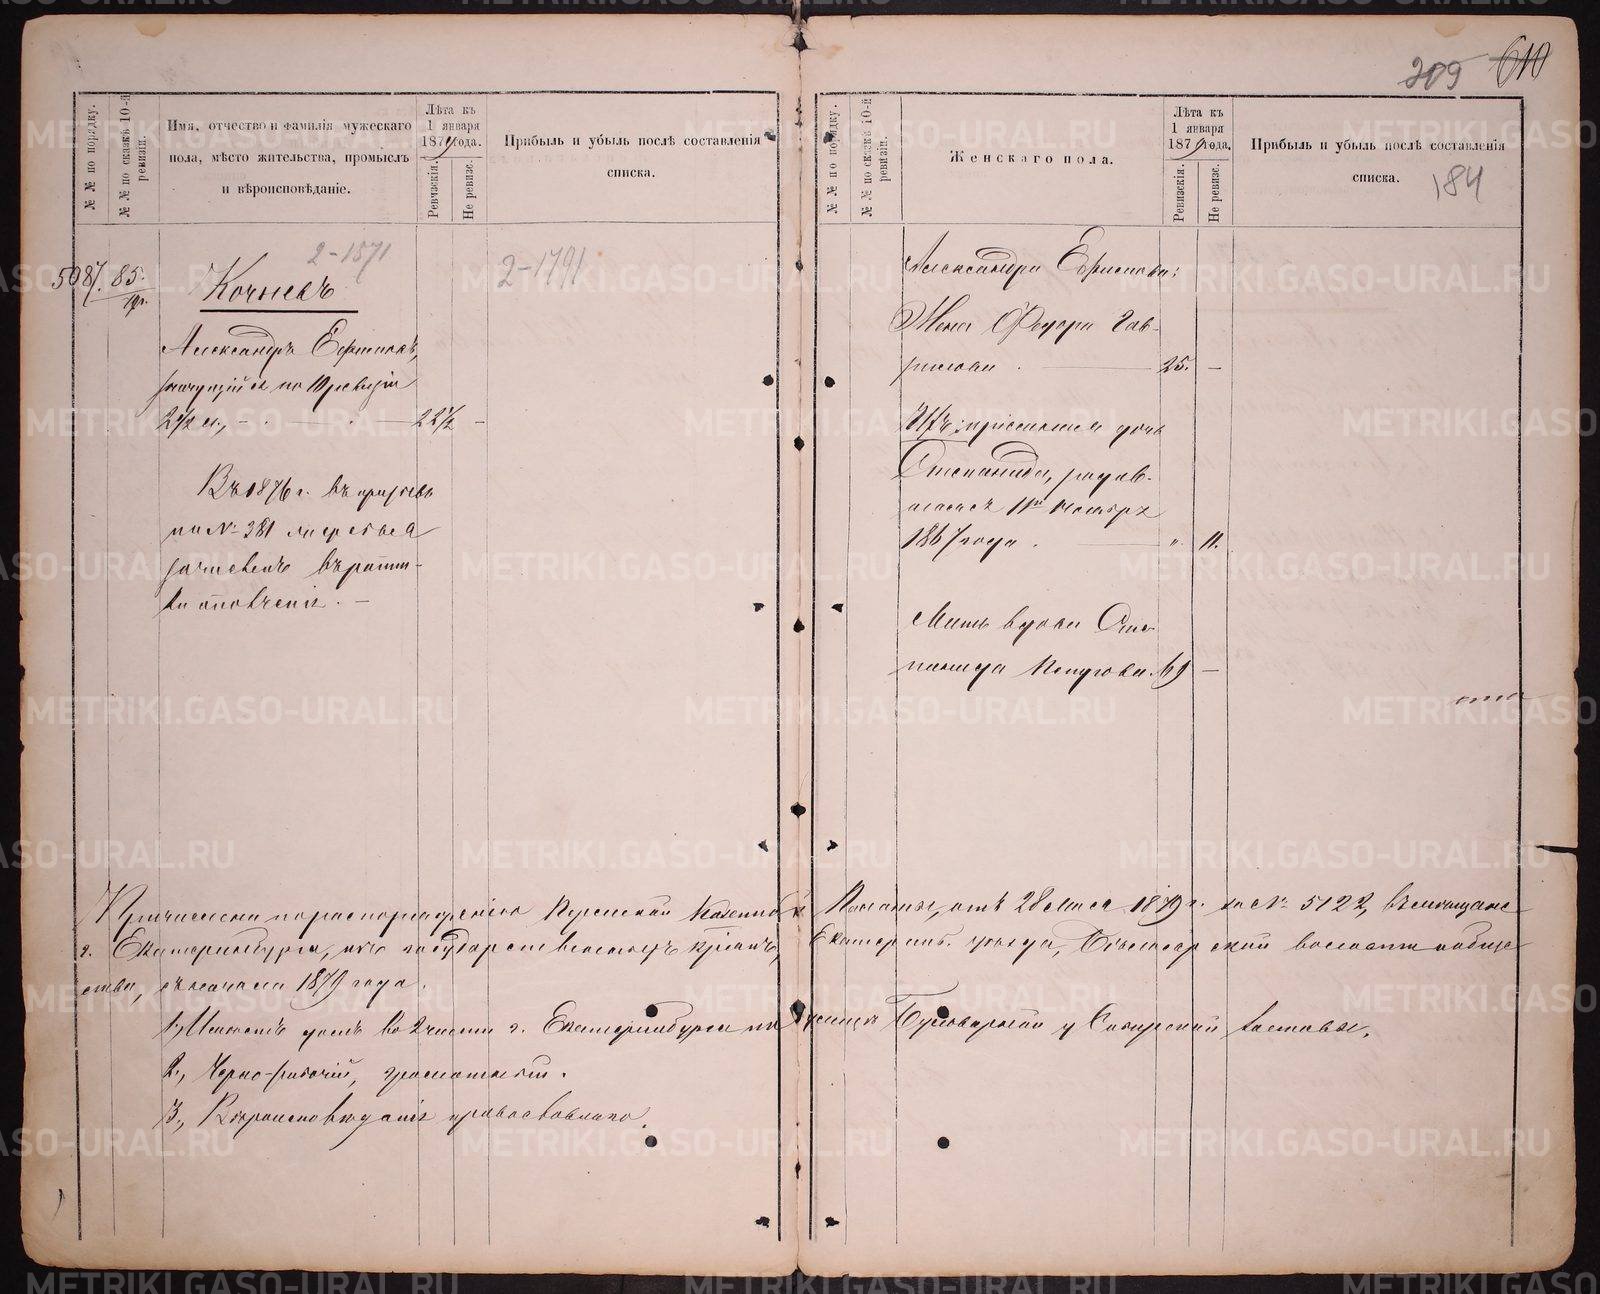 209 610
№№ по порядку.
№№ по сказкѣ 10-й ревизіи.
Имя, отчество и фамилія мужескаго
пола, мѣсто жительства, промыслъ
и вѣроисповѣданіе.
Лѣта къ
1 января
1879 года.
Ревизскія.
Не ревизс.
Прибыль и убыль послѣ составленія
списка.
2-1571
2-1791
5087. 85.
Кочневъ
Александръ Ефимовъ,
по 10 ревизіи
2½ м., - 22½ -
Въ 1876 г. въ призывъ
по № 381 жеребья
зачисленъ въ ратни-
ки ополченія. —
№№ по порядку.
№№ по сказкѣ 10-й ревизіи.
Женскаго пола.
Лѣта къ
1 января
1879 года.
Ревизскія.
Не ревизс.
Прибыль и убыль послѣ составленія
списка.
184
Александра Ефимова:
Жена Федора Гав-
рилова . — 25. —
Ихъ дочь
Степанида, родив-
шаяся 11го Ноября
1867 года . — " 11.
Мать вдова Сте-
панида Петрова. 69 —
Причислены по распоряженію Пермской Казенной Палаты, отъ 28 мая 1879 г. за № 5122, въ мѣщане
г. Екатеринбурга, изъ государственныхъ крѣстьянъ, Екатеринб. уѣзда, волости и обще-
ства, съ начала 1879 года.
1., Имѣютъ домъ во 2 части г. Екатеринбурга по улицѣ у Сибирской заставы.
2., Черно-рабочій, грамотный.
3., Вѣроисповѣданія православнаго.
METRIKI.GASO-URAL.RU